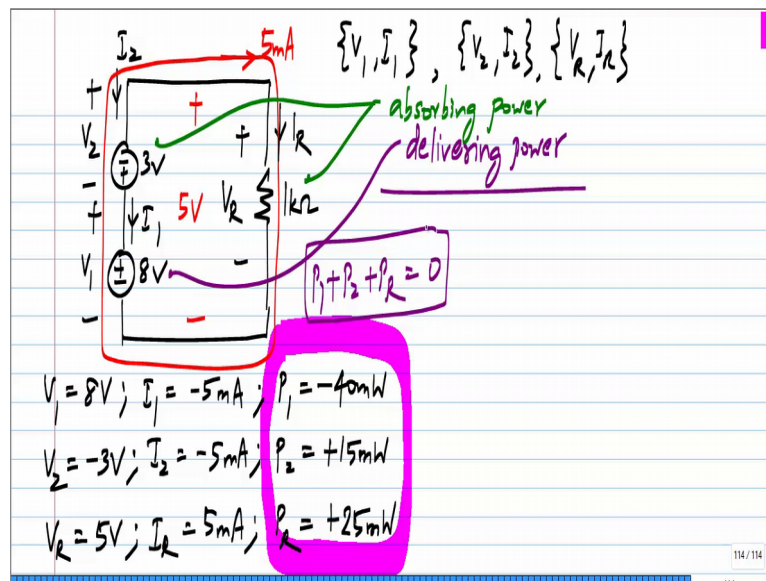 I₂ 5mA {V₁,I₁}, {V₂,I₂}, {V_R,I_R}
+ + absorbing power
V₂ 3V + I_R delivering power
- 
+ I₁ 5V V_R 1kΩ
V₁ 8V - P₁+P₂+P_R=0
- -
V₁=8V; I₁=-5mA; P₁=-40mW
V₂=-3V; I₂=-5mA; P₂=+15mW
V_R=5V; I_R=5mA; P_R=+25mW
114 / 114